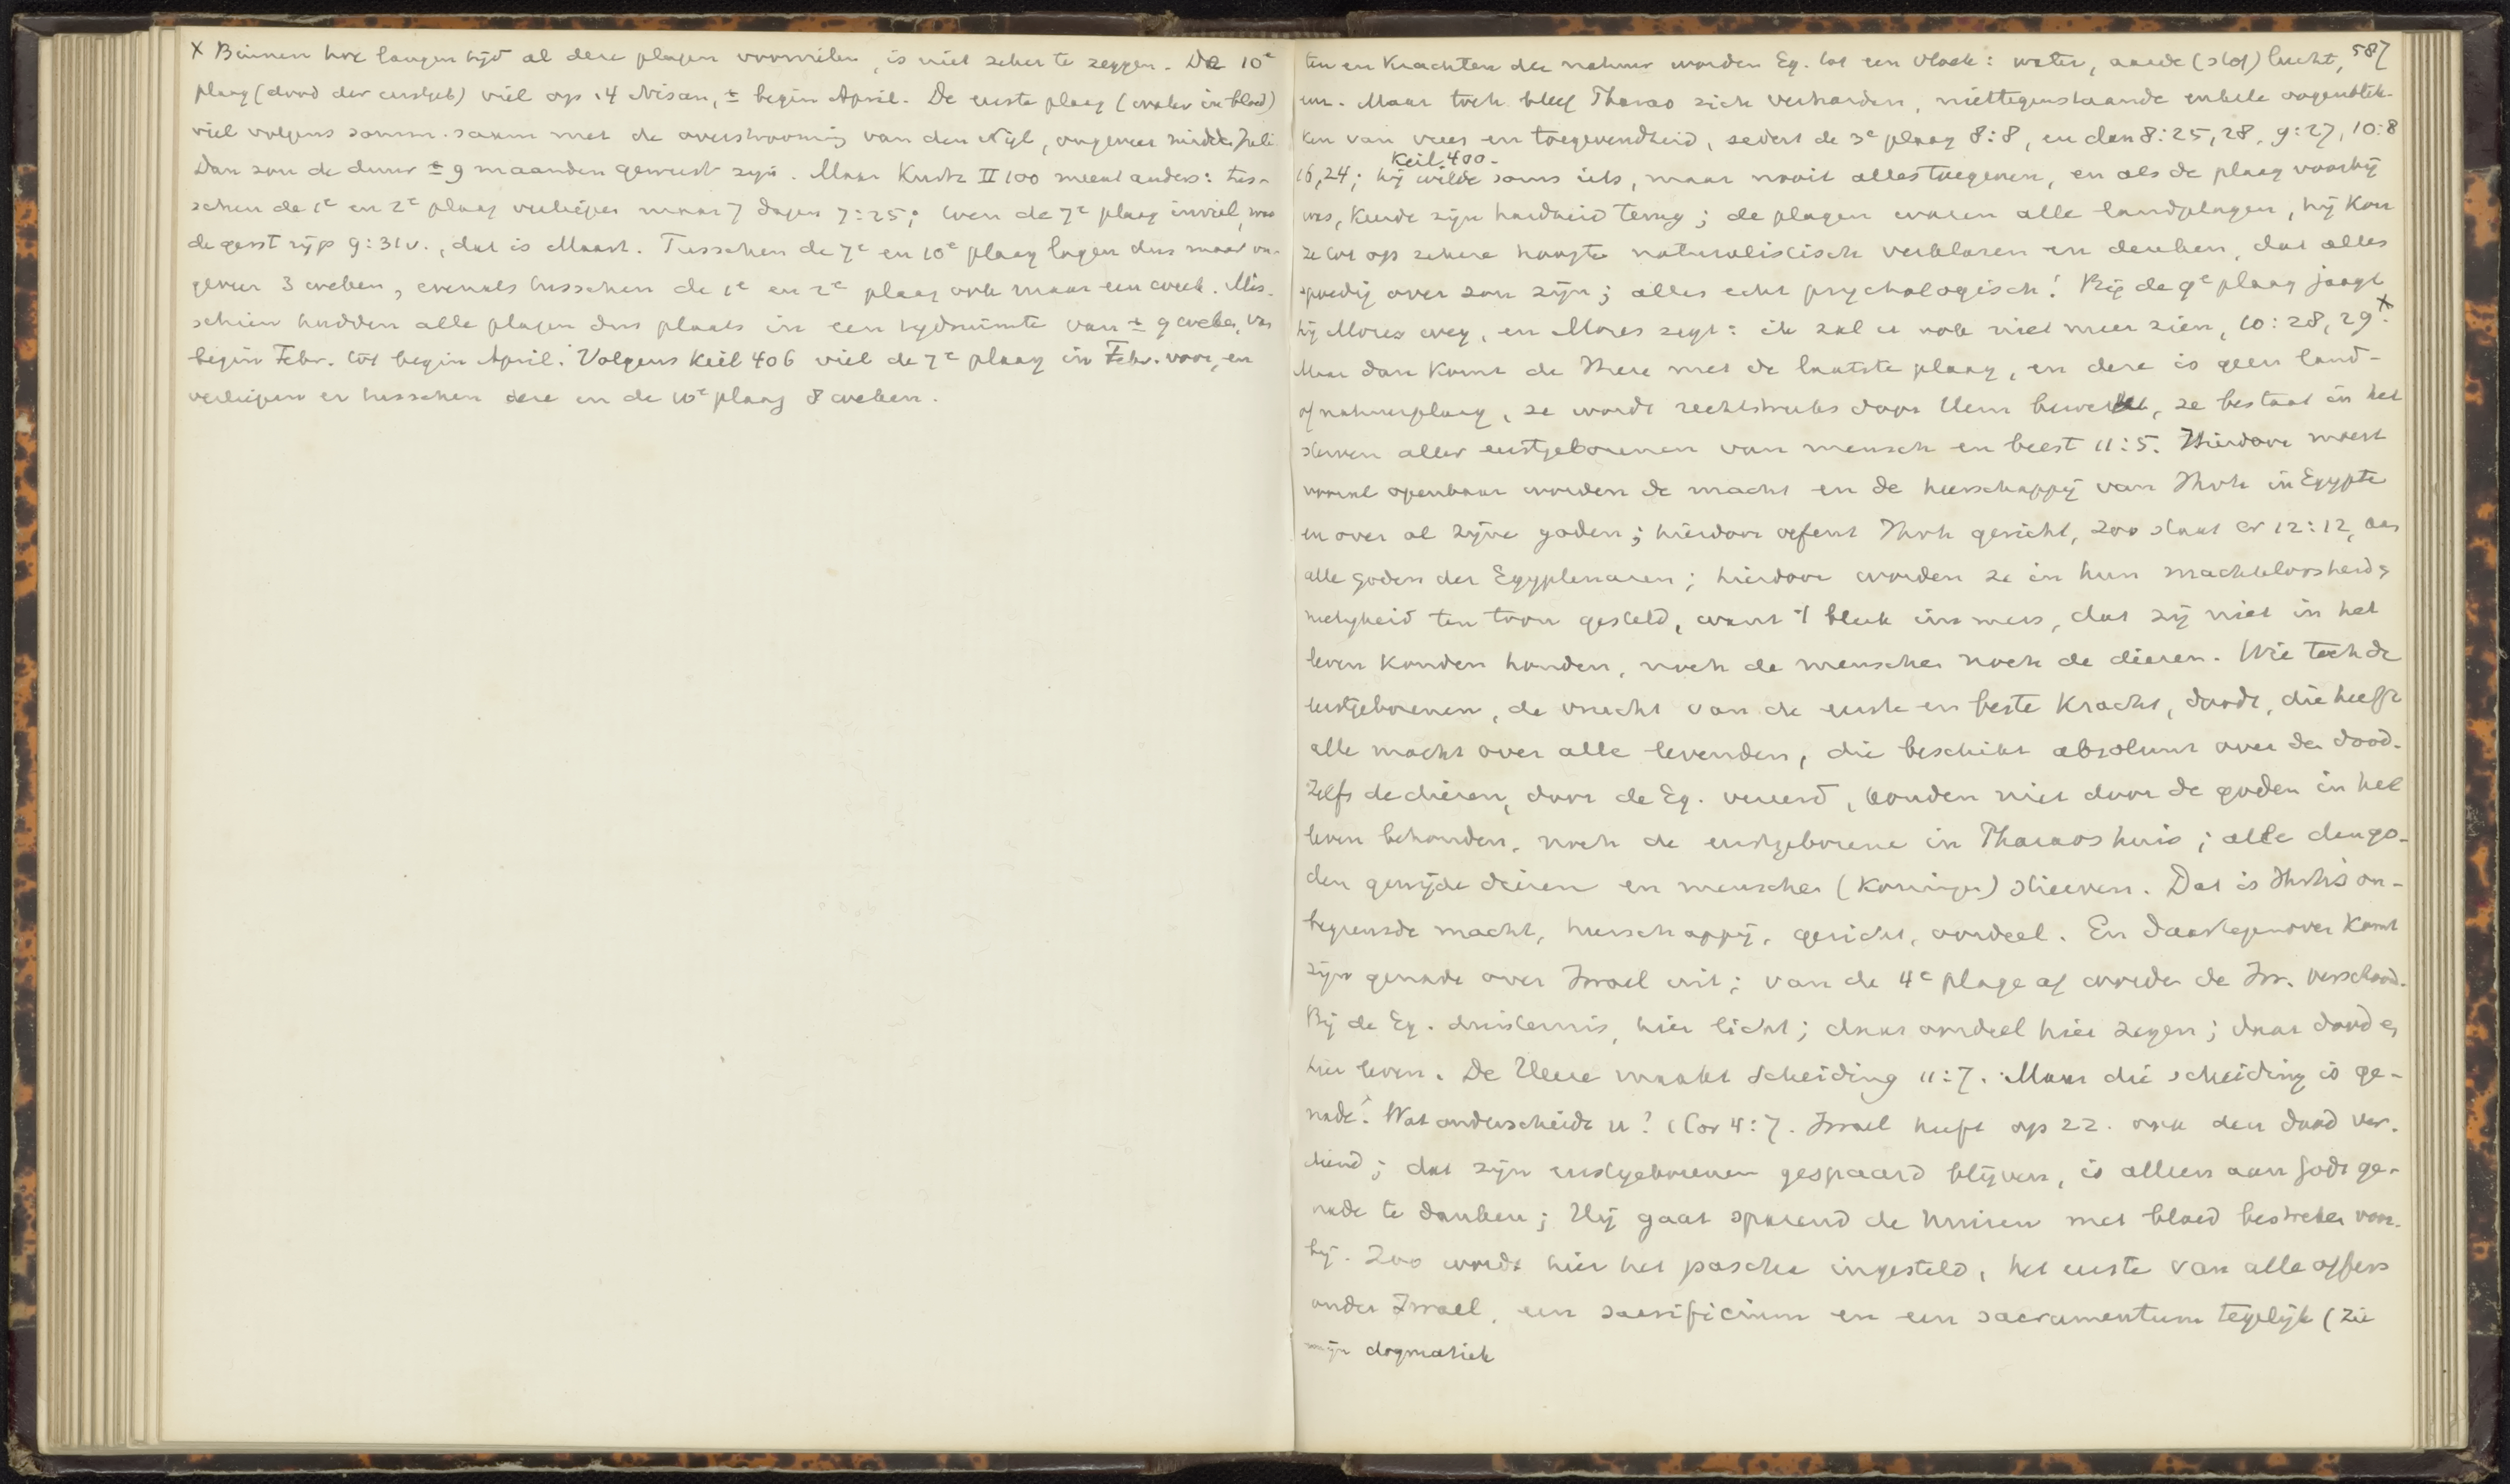 x Binnen hoe langen tijd al deze plagen voorvielen, is niet zeker te zeggen. De 10e
plaag (dood der eerstgeb) viel op 14 Nisan, ± begin April. De eerste plaag (water in bloed)
viel volgens somm. saam met de overstrooming van den Nijl, ongeveer midde Juli
Dan zou de duur ± 9 maanden geweest zijn. Maar Kurtz II 100 meent anders: tus-
schen de 1e en 2e plaag verliepen maar 7 dagen 7:25; toen de 7e plaag inviel, was
de gerst rijp 9:31v., dat is Maart. Tusschen de 7e en 10e plaag lagen dus maar on-
geveer 3 weken, evenals tusschen de 1e en 2e plaag ook maar een week. Mis-
schien hadden alle plagen dus plaats in een tijdruimte van ± 9 weken, van
begin Febr. tot begin April. Volgens Keil 406 viel de 7e plaag in Febr. voor, en
verliepen er tusschen deze en de 10e plaag 8 weken.
587
ten en Krachten der natuur worden Eg. tot een vloek: water, aarde (stof) lucht,
enz. Maar toch bleef Pharao zich verharden, niettegenstaande enkele oogenblik-
ken van vrees en toegevendheid, sedert de 3e plaag 8:8, en dan 8:25, 28, 9:27, 10:8
Keil 400-
16, 24; hij wilde soms iets, maar nooit alles toegeven, en als de plaag voorbij
was, keerde zijn hardheid terug; de plagen waren alle landplagen, hij kon
ze tot op zekere hoogte naturalistisch verklaren en denken, dat alles
spoedig over zou zijn; alles echt psychologisch! Bij de 9e plaag jaagt
hij Mozes weg, en Mozes zegt: ik zal u ook niet meer zien, 10:28, 29. x
Maar dan komt de Heere met de laatste plaag, en deze is geen land-
of natuurplaag, ze wordt rechtstreeks door Hem bewerkt, ze bestaat in het
sterven aller eerstgeborenen van mensch en beest 11:5. Hierdoor moest
vooral openbaar worden de macht en de heerschappij van Jhvh in Egypte
en over al zijne goden; hierdoor oefent Jhvh gericht, zoo staat er 12:12, aan
alle goden der Egyptenaren; hierdoor worden ze in hun machteloosheid &
nietigheid ten toon gesteld, want 't bleek immers, dat zij niet in het
leven konden houden, noch de menschen noch de dieren. Wie toch de
eerstgeborenen, de vrucht van de eerste en beste kracht, doodt, die heeft
alle macht over alle levenden, die beschikt absoluut over den dood.
Zelfs de dieren, door de Eg. vereerd, konden niet door de goden in het
leven behouden, noch de eerstgeborene in Pharaos huis; alle den go-
den gewijde dieren en menschen (Koningen) stierven. Dat is Jhvh's on-
begrensde macht, heerschappij, gericht, oordeel. En daartegenover komt
zijn genade over Israel uit; van de 4e plage af worden de Isr. verschoond.
Bij de Eg. duisternis, hier licht; daar oordeel hier zegen; daar dood &
hier leven. De Heere maakt scheiding 11:7. Maar die scheiding is ge-
nade. Wat onderscheidt u? 1 Cor 4:7. Israel heeft op zz. ook den dood ver-
diend; dat zijn eerstgeborenen gespaard blijven, is alleen aan Gods ge-
nade te danken; Hij gaat sparend de huizen met bloed bestreken voor-
bij. Zoo wordt hier het pascha ingesteld, het eerste van alle offers
onder Israel, een sacrificium en een sacramentum tegelijk (zie
mijn dogmatiek